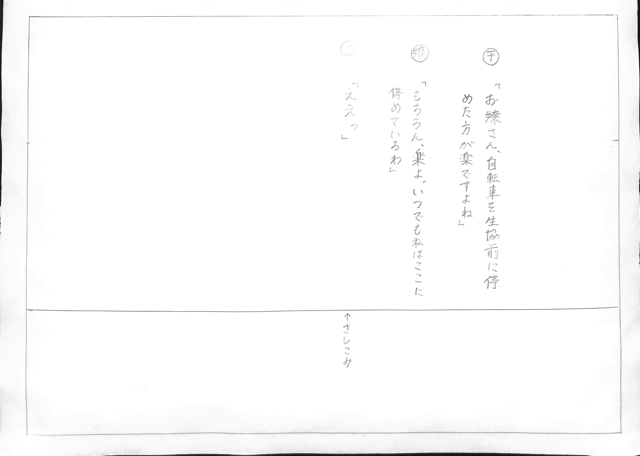 千
「お嬢さん、自転車を生協前に停
めた方が楽ですよね」
「もちろん、楽よ。いつでも私はここに
停めているわ」
「ええっ」
↑さしこみ